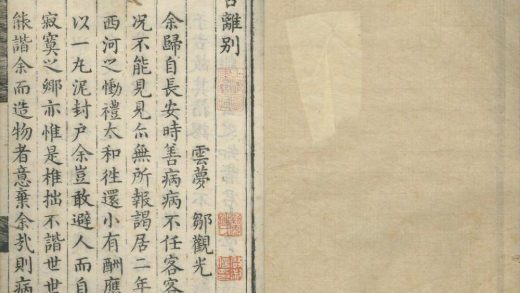 古離別
雲夢 鄒觀光
余歸自長安時善病病不任客客
况不能見見亦無所報謁居二年
西河之慟禮太和徃還小有酬應
以一丸泥封戶余豈敢避人而自
寂寞之鄉亦惟是椎拙不諧世世
能諧余而造物者意棄余㢤則病